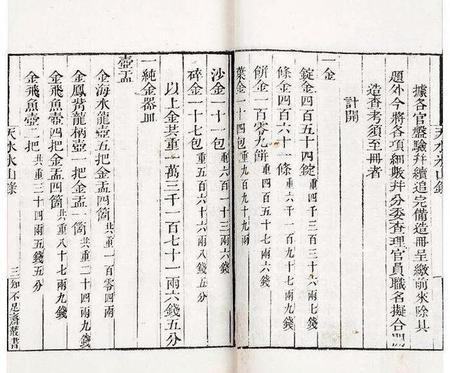 據各官盤驗幷續追完備造冊呈繳前來除具
題外今將各項細數幷分委查理官員職名擬合開
造查考須至冊者
計開
一金
錠金四百五十四錠重四千三百三十六兩七錢
條金四百六十一條重六千一百九十七兩九錢
餅金一百零九餅
葉金一十四包重九百九十九兩
沙金一十一包
碎金一十七包重五百六十六兩八錢五分
以上金共重一萬三千一百七十一兩六錢五分
一純金器皿
壺盂
金海水龍壺五把金盂四箇共重一百零四兩
金鳳背龍柄壺一把金盂一箇共重二十四兩九錢
金飛魚壺四把金盂四箇共重八十七兩九錢
金飛魚壺二把共重三十四兩五錢五分
天水冰山錄 三 知不足齋叢書